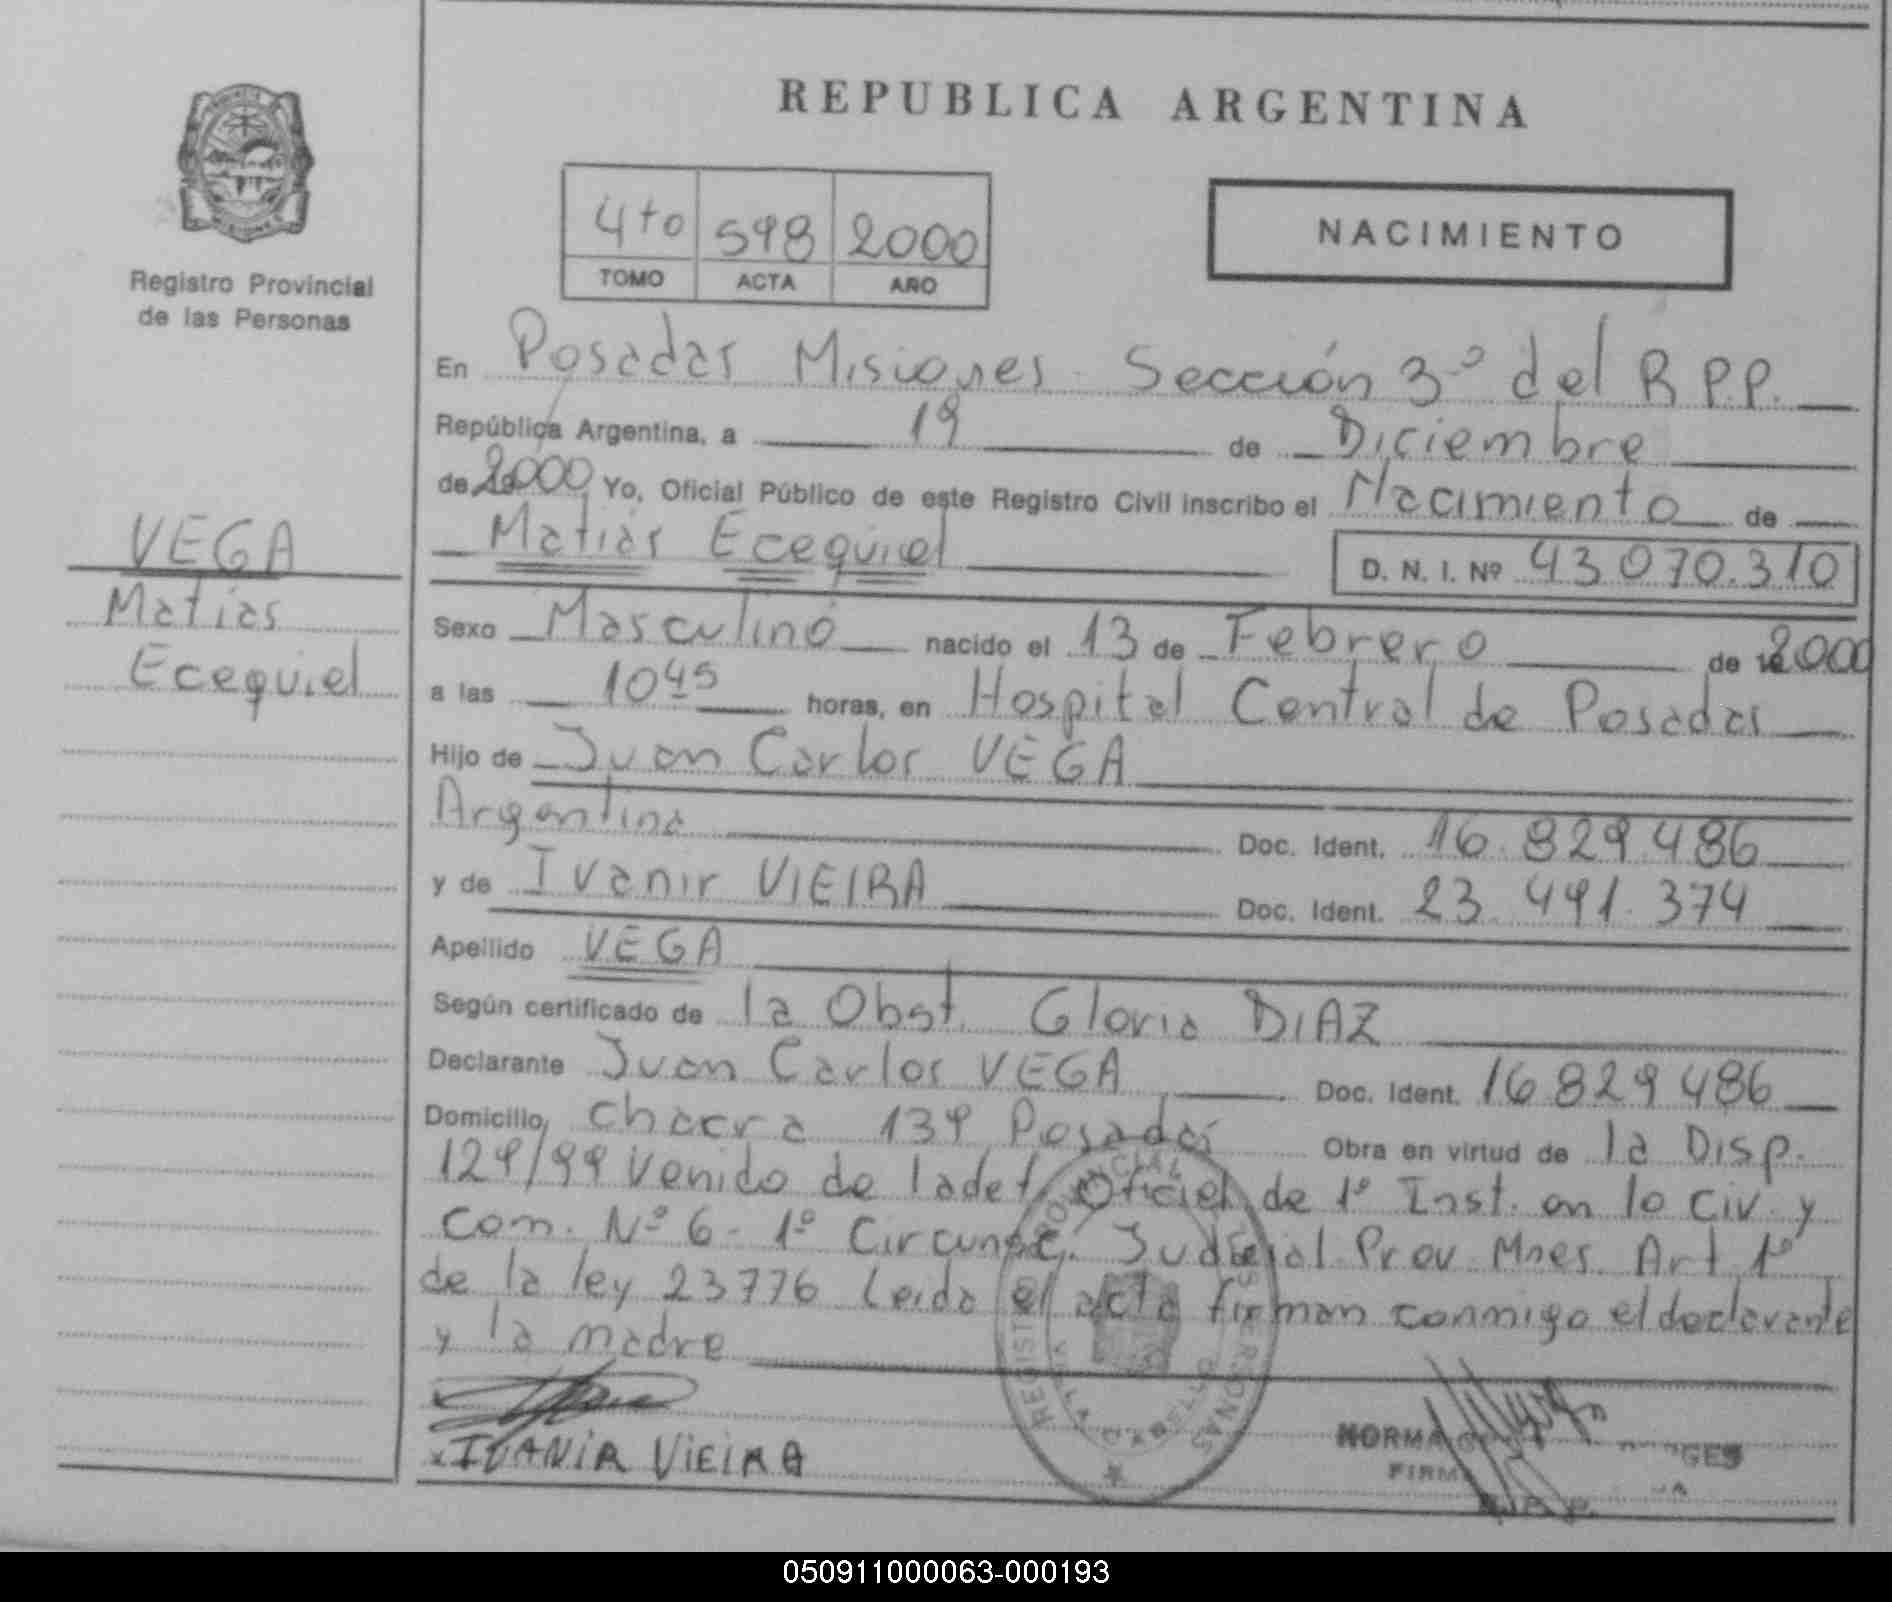 REPUBLICA ARGENTINA
Registro Provincial
de las Personas
4to 598 2000
TOMO ACTA AÑO
NACIMIENTO
En Posadas Misiones Sección 3º del R.P.P.
República Argentina, a 19 de Diciembre
de 2000 Yo, Oficial Público de este Registro Civil inscribo el Nacimiento de
Matias Ecequiel
D. N. I. Nº 43 070.310
VEGA
Matias
Ecequiel
Sexo Masculino nacido el 13 de Febrero de 2000
a las 10 45 horas, en Hospital Central de Posadas
Hijo de Juan Carlos VEGA
Argentina Doc. Ident. 16.829.486
y de Ivanir VIEIRA Doc. Ident. 23.491.374
Apellido VEGA
Según certificado de la Obst. Gloria DIAZ
Declarante Juan Carlos VEGA Doc. Ident. 16 829 486
Domicilio, chacra 139 Posadas Obra en virtud de la Disp.
129/99 Venido de la def. Oficial de 1º Inst. en lo Civ. y
Com. Nº 6 - 1º Circunsc. Judicial Prov. Mnes. Art 1º
de la ley 23776 Leida el acta firman conmigo el declarante
y la madre
x IVANIR VIEIRA
REGISTRO PROVINCIAL PERSONAS
NORMA
050911000063-000193